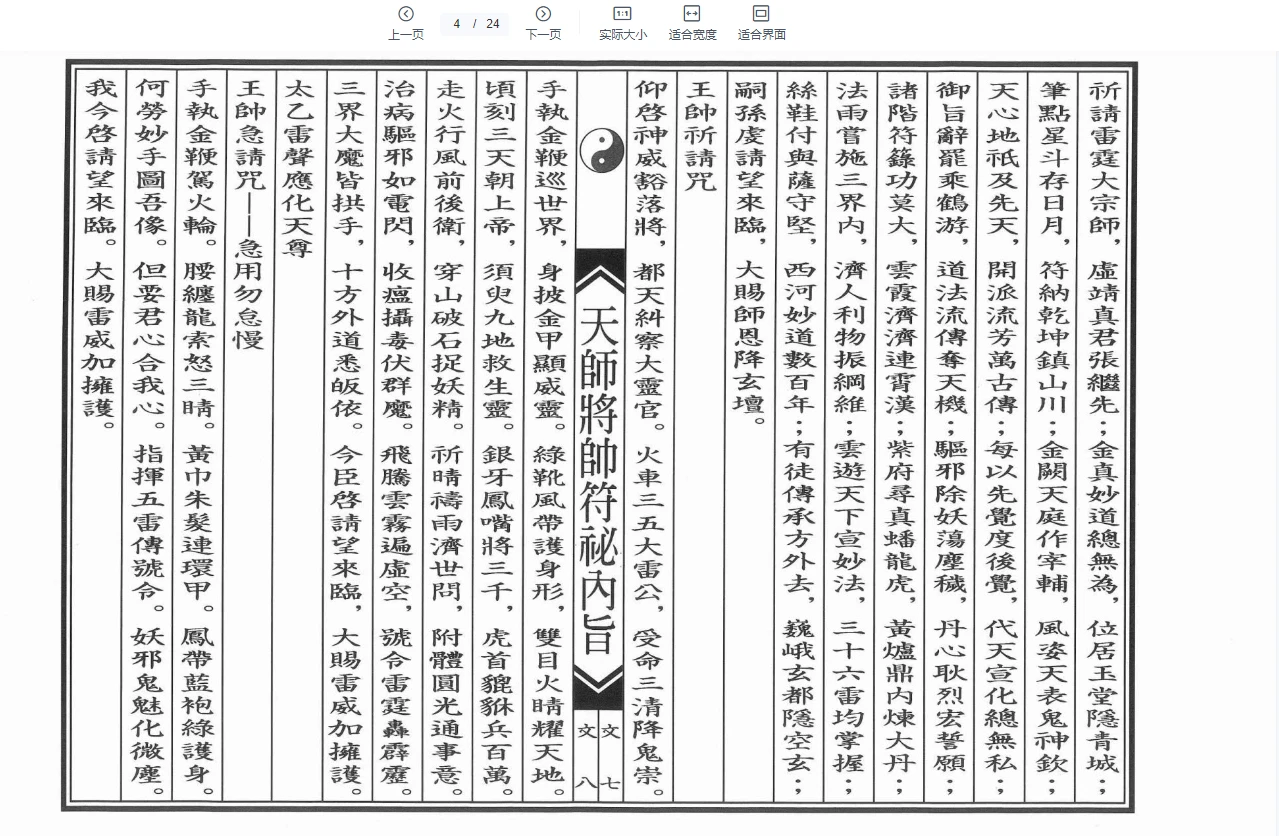 上一页
4 / 24
下一页
1:1
实际大小
适合宽度
适合界面
祈請雷霆大宗師，虛靖真君張繼先；金真妙道總無為，位居玉堂隱青城；
筆點星斗存日月，符納乾坤鎮山川；金闕天庭作宰輔，風姿天表鬼神欽；
天心地祇及先天，開派流芳萬古傳；每以先覺度後覺，代天宣化總無私；
御旨辭罷乘鶴游，道法流傳奪天機；驅邪除妖蕩塵穢，丹心耿烈宏誓願；
諸階符籙功莫大，雲霞濟濟連霄漢；紫府尋真蟠龍虎，黃爐鼎內煉大丹；
法雨嘗施三界內，濟人利物振綱維；雲遊天下宣妙法，三十六雷均掌握；
絲鞋付與薩守堅，西河妙道數百年；有徒傳承方外去，巍峨玄都隱空玄；
嗣孫虔請望來臨，大賜師恩降玄壇。
王帥祈請咒
仰啓神威豁落將，都天糾察大靈官。火車三五大雷公，受命三清降鬼崇。
天師將帥符祕內旨
文 七
文 八
手執金鞭巡世界，身披金甲顯威靈。綠靴風帶護身形，雙目火睛耀天地。
頃刻三天朝上帝，須臾九地救生靈。銀牙鳳嘴將三千，虎首貔貅兵百萬。
走火行風前後衛，穿山破石捉妖精。祈晴禱雨濟世問，附體圓光通事意。
治病驅邪如電閃，收瘟攝毒伏群魔。飛騰雲霧遍虛空，號令雷霆轟霹靂。
三界大魔皆拱手，十方外道悉皈依。今臣啓請望來臨，大賜雷威加擁護。
太乙雷聲應化天尊
王帥急請咒——急用勿怠慢
手執金鞭駕火輪。腰纏龍索怒三睛。黃巾朱髮連環甲。鳳帶藍袍綠護身。
何勞妙手圖吾像。但要君心合我心。指揮五雷傳號令。妖邪鬼魅化微塵。
我今啓請望來臨。大賜雷威加擁護。